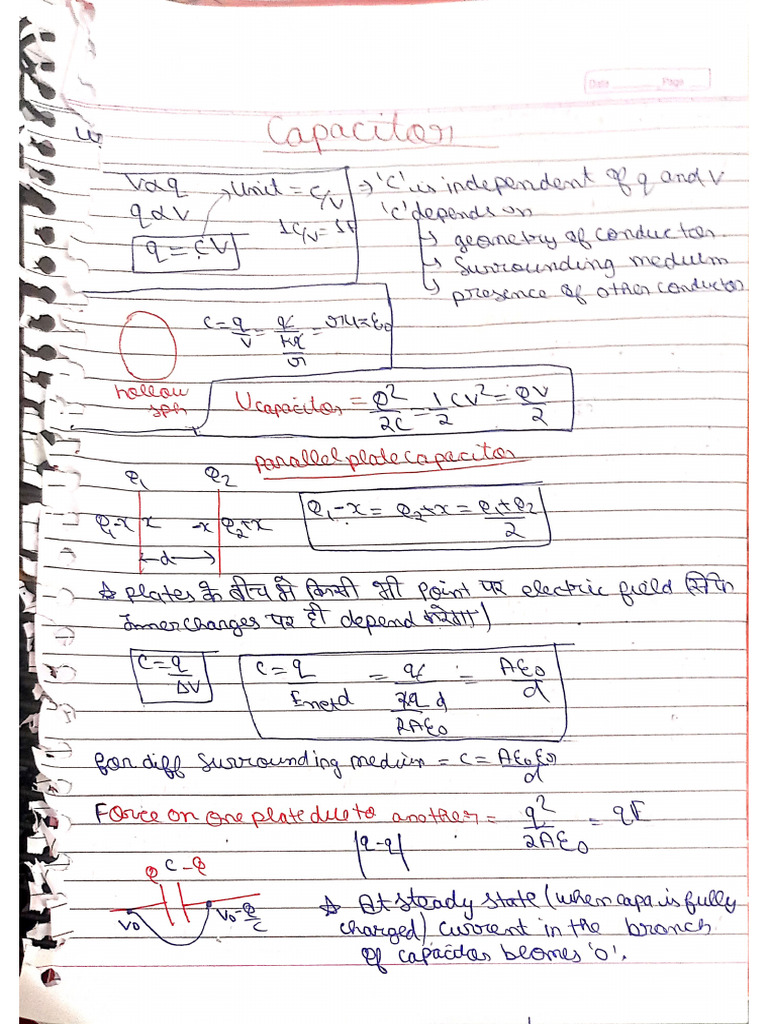 Date Page
Capacitor
V∝q → Unit = C/V → 'C' is independent of q and V
q∝V 1C/V = 1F 'C' depends on
q = CV → geometry of conductor.
→ Surrounding medium
→ presence of other conductor
C = q/V = q/(kq/r) = r4πε0
hollow
sph
Ucapacitor = Q²/2C = 1/2 CV² = QV/2
parallel plate capacitor
Q1 Q2
Q1-x x -x Q2+x
Q1-x = Q2+x = (Q1+Q2)/2
d
☆ plates के बीच मे किसी भी point पर electric field सिर्फ
Inner charges पर ही depend करेगा)
C = q/ΔV C = q/(Enet d) = q/(2q d/2Aε0) = Aε0/d
for diff surrounding medium = C = Aε0εr/d
Force on one plate due to another = q²/2Aε0 = qE
|q -q|
Q C -Q
V0 V0-Q/C
☆ At steady state (when capa is fully
charged) current in the branch
of capacitor bcomes '0'.